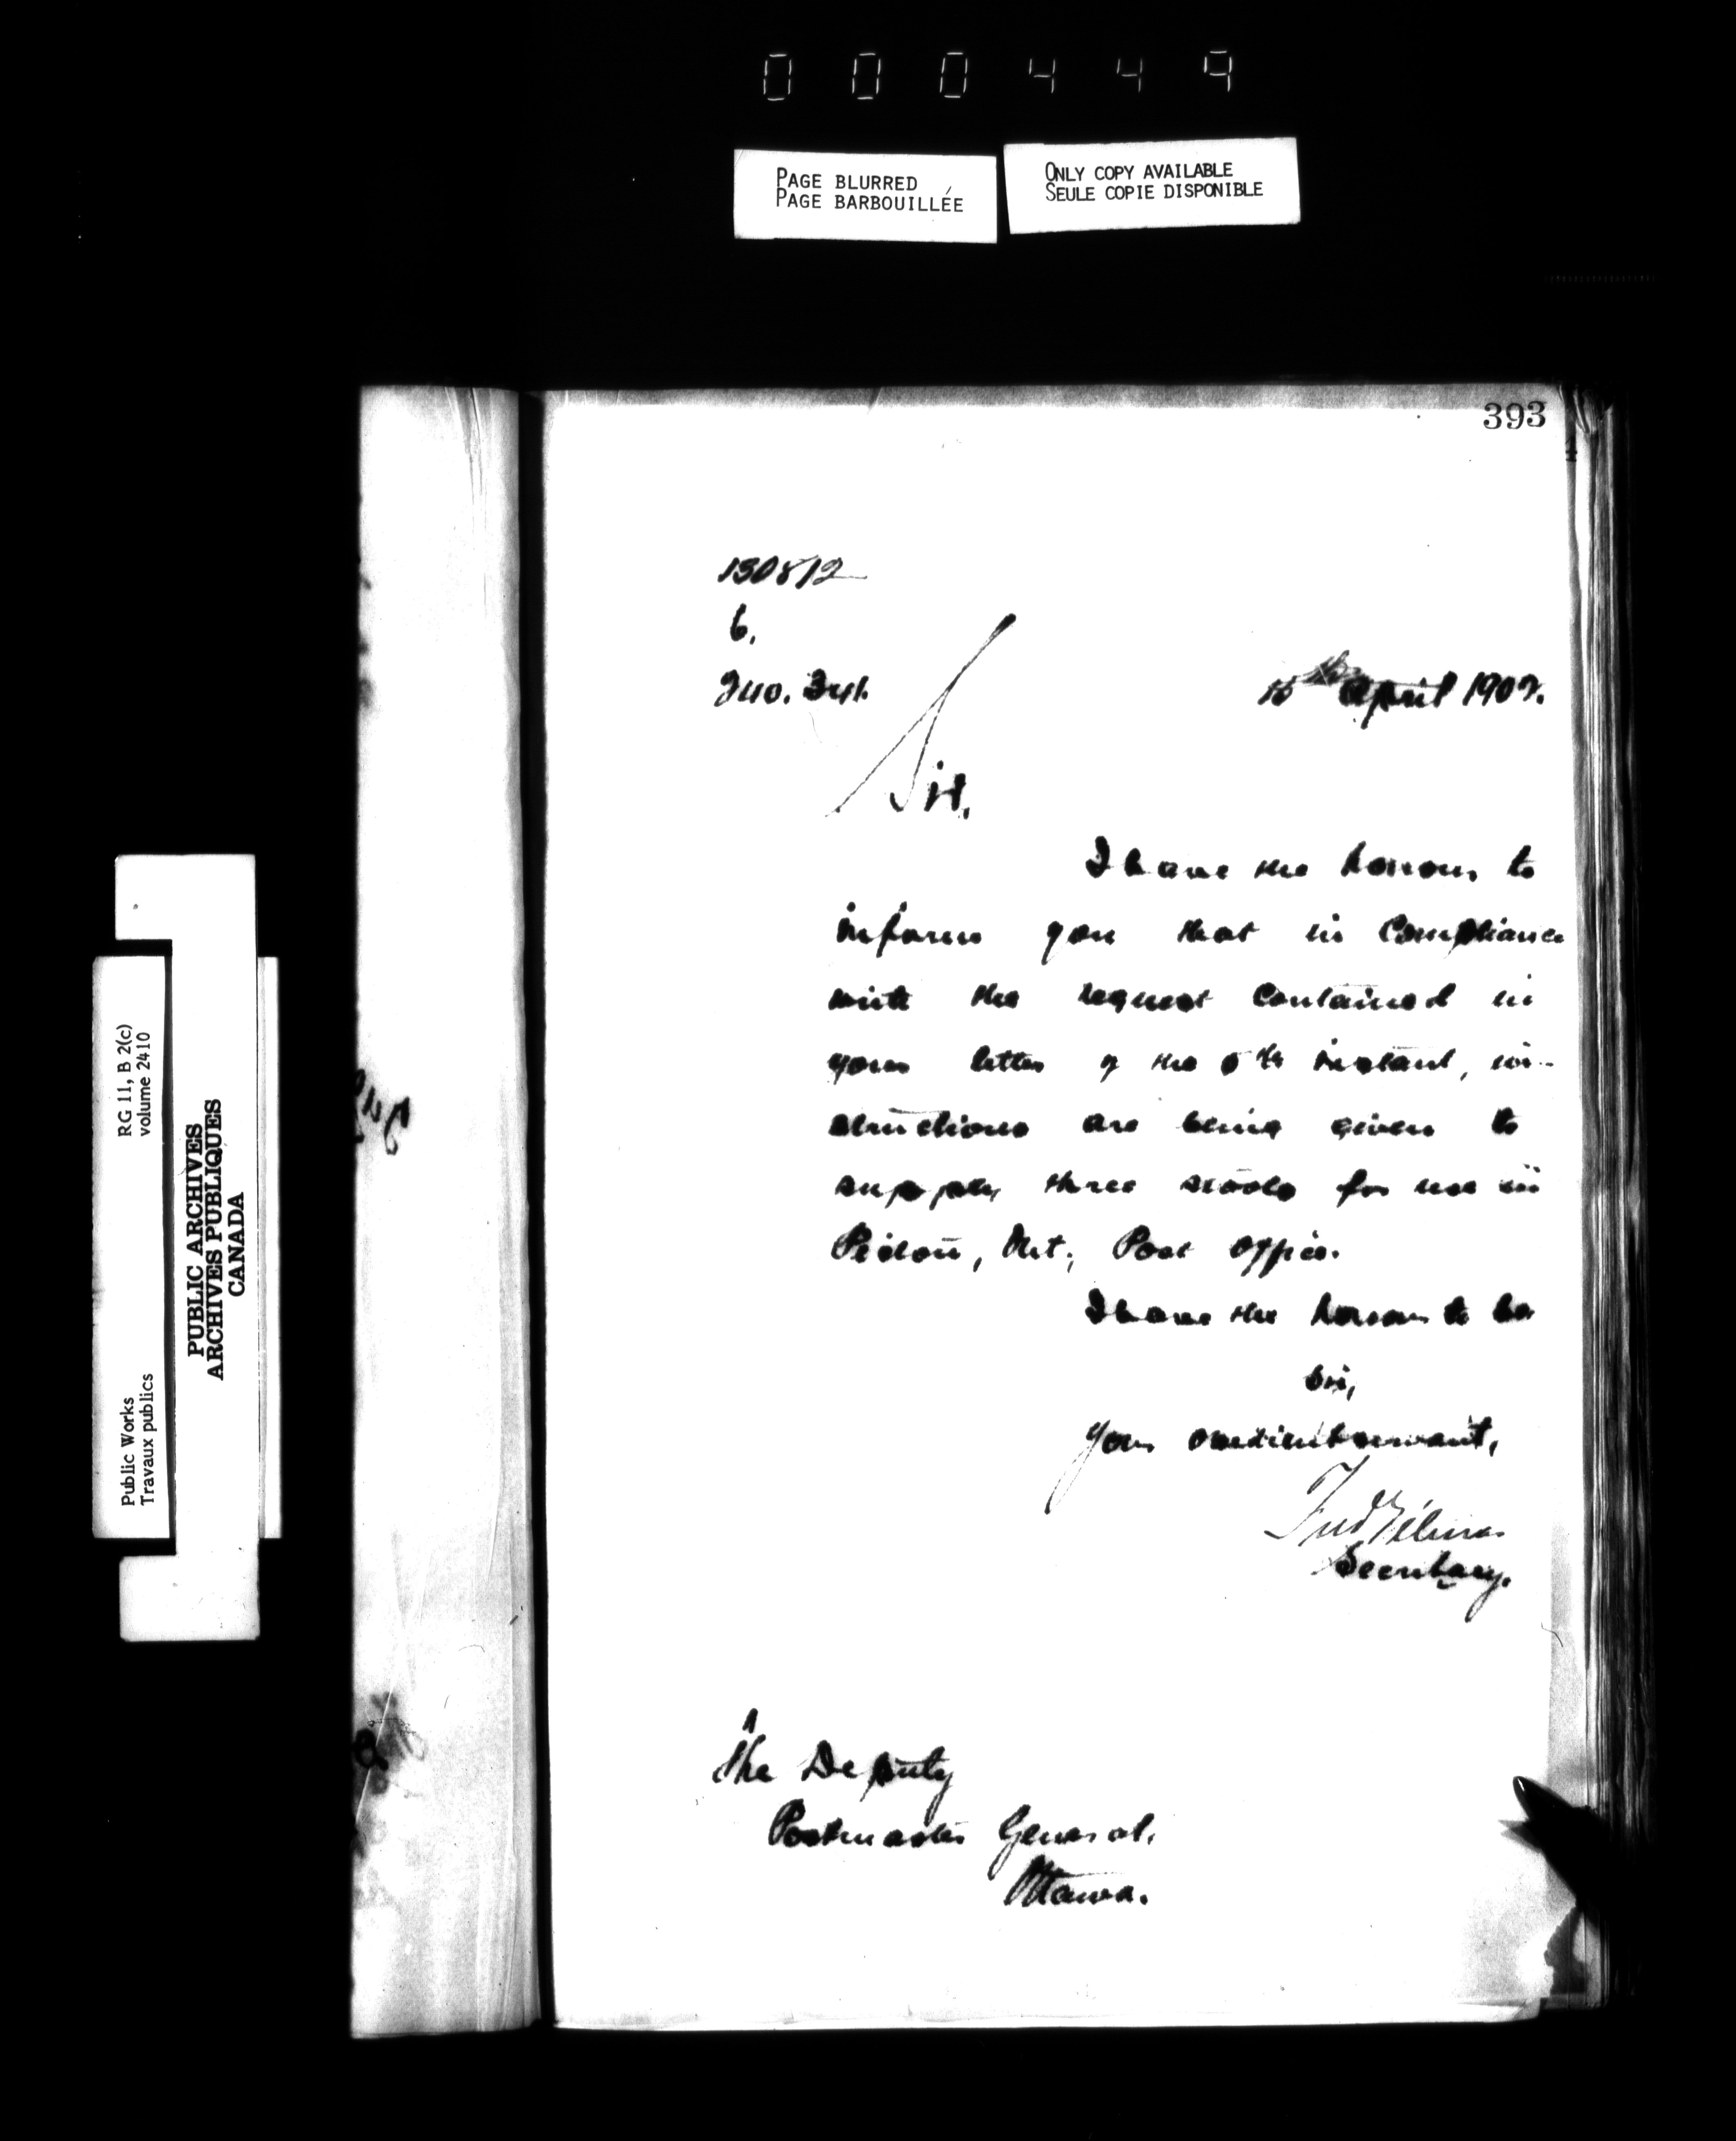 000449
PAGE BLURRED
PAGE BARBOUILLÉE
ONLY COPY AVAILABLE
SEULE COPIE DISPONIBLE
393
130812
6.
April 1907.
Sir,
I have the honour to
inform you that in compliance
with the request contained in
your letter of the 5th instant, in-
structions are being given to
supply three stools for use in
Picton, Ont; Post Office.
I have the honour to be
Sir,
Your obedient servant,
Fred Gélinas
Secretary.
The Deputy
Postmaster General,
Ottawa.
RG 11, B 2(c)
volume 2410
Public Works
Travaux publics
PUBLIC ARCHIVES
ARCHIVES PUBLIQUES
CANADA